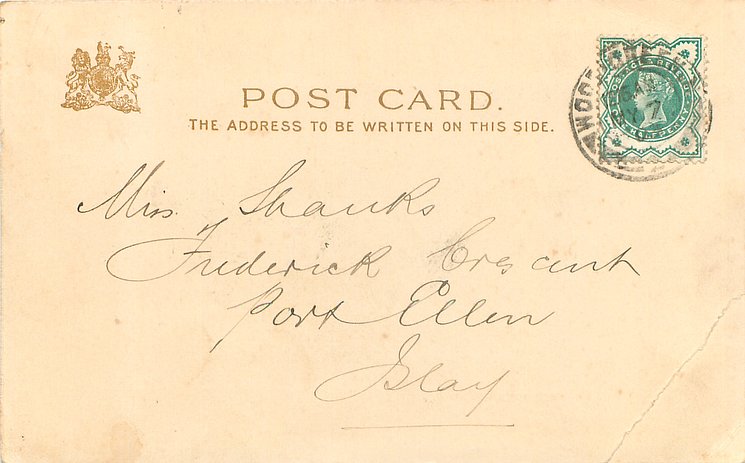 POST CARD.
THE ADDRESS TO BE WRITTEN ON THIS SIDE.
POSTAGE & REVENUE
HALFPENNY
Miss. Shanks
Frederick Crescent
Port Ellen
Islay